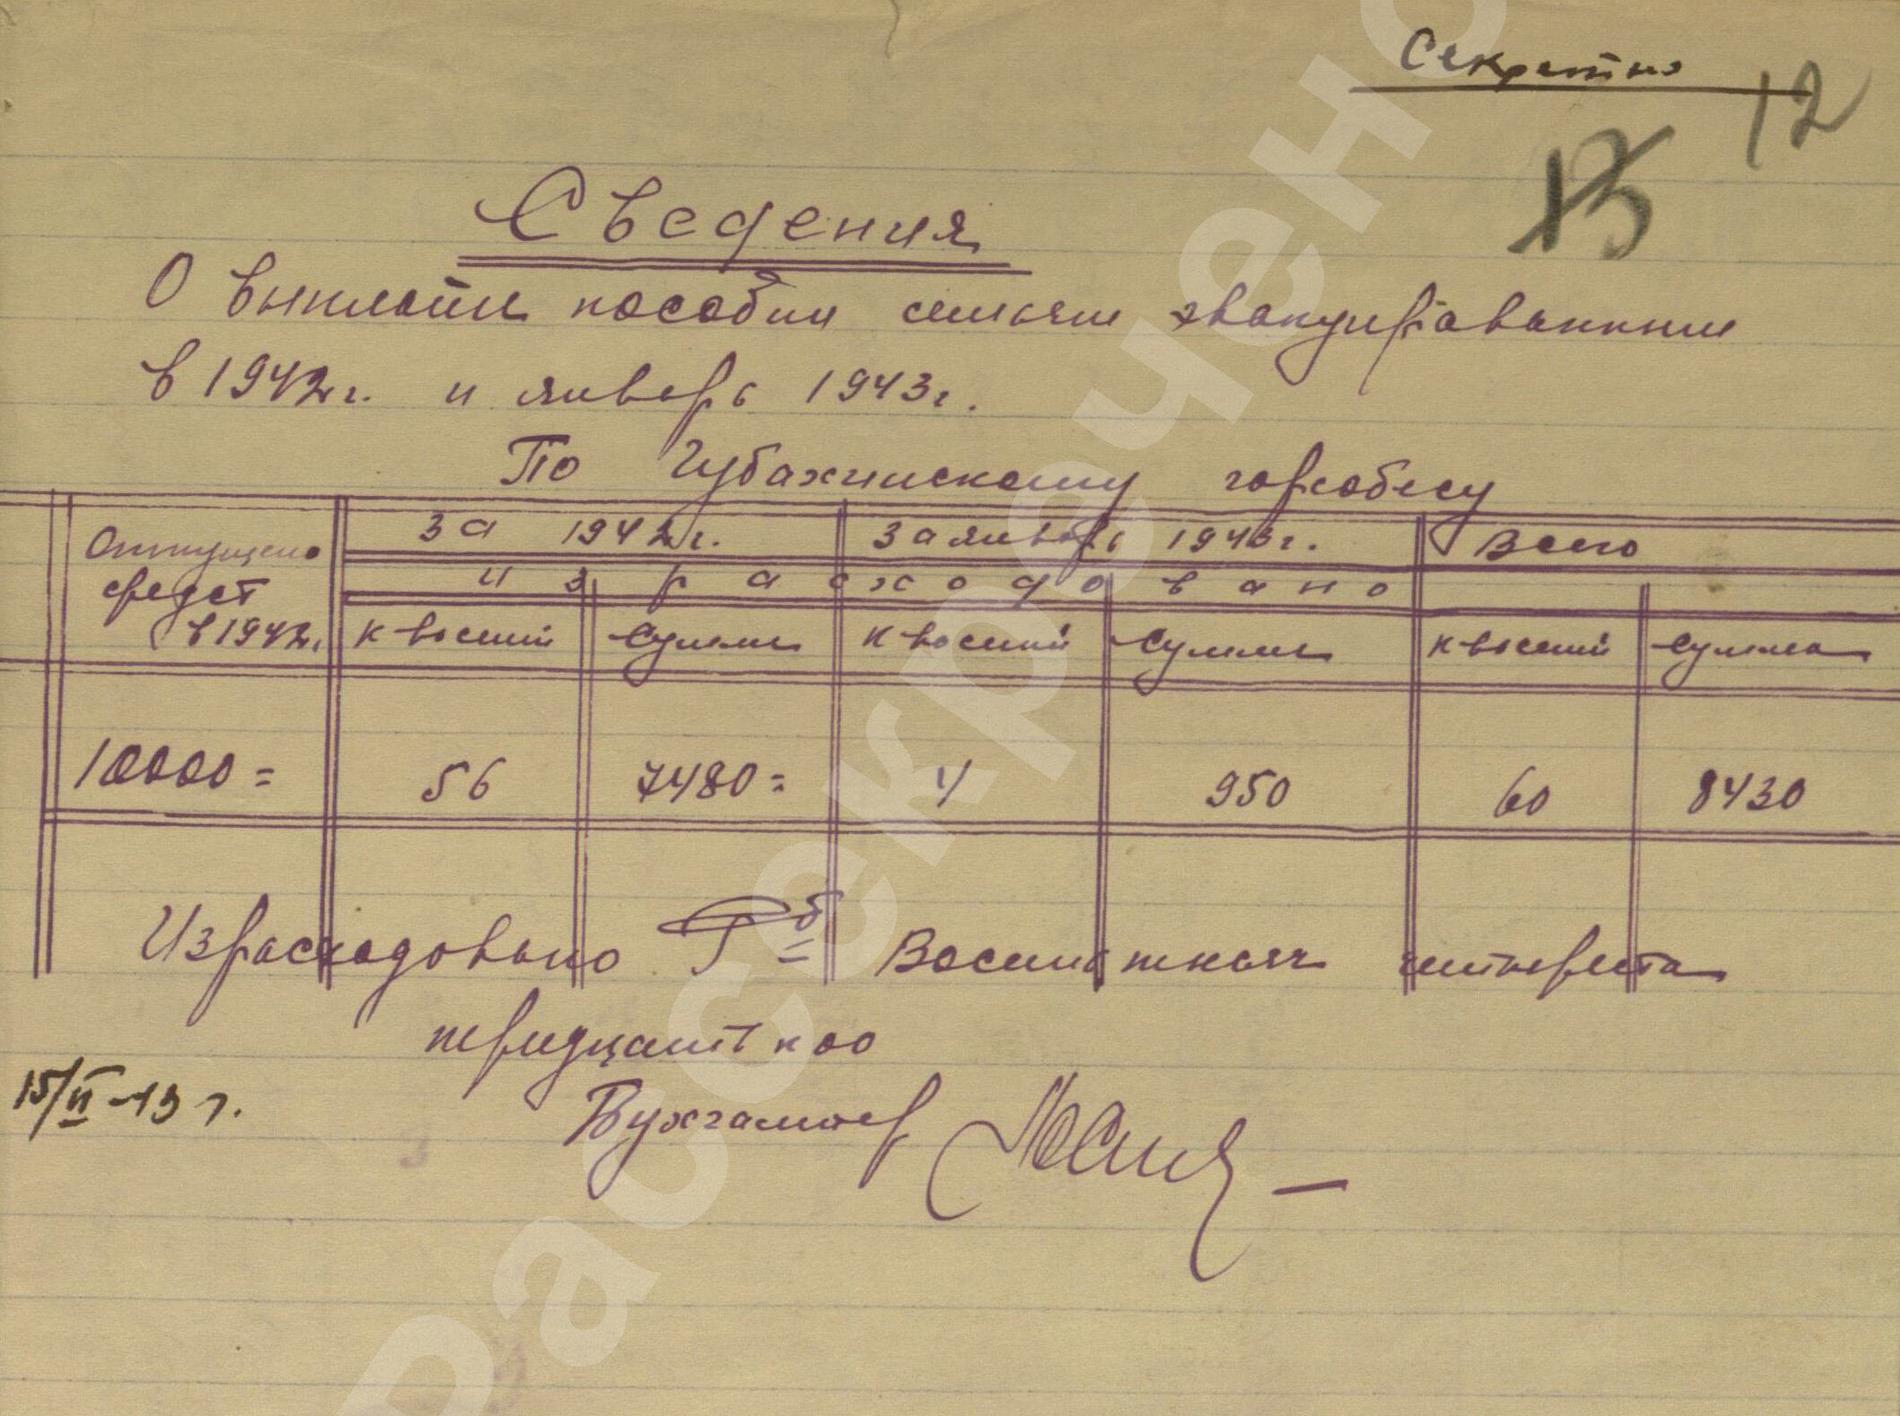 Секретно
12
13
Сведения
О выплате пособия семьям эвакуированным
в 1942г. и январь 1943г.
По Губахинскому горсобесу
Отпущено средст в 1942г.
за 1942г. за январь 1943г. Всего
израсходовано
к во семей сумма к во семей сумма к во семей сумма
10000= 56 7480= 4 950 60 8430
Израсходовано Восемь тысяч четыреста
тридцать к 00
15/II-43 г.
Бухгалтер
Рассекречено